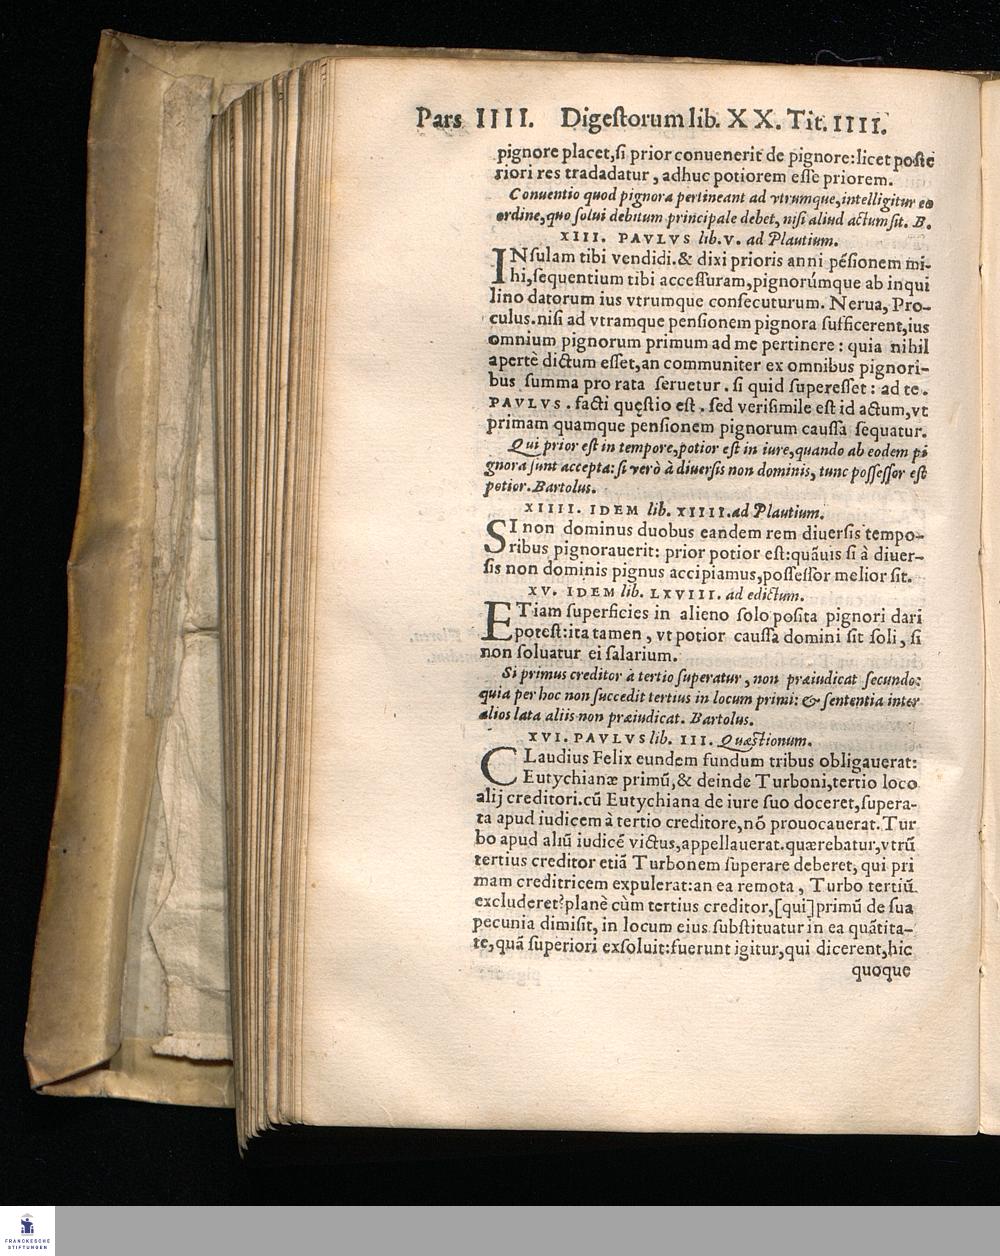 Pars IIII. Digeſtorum lib. XX. Tit. IIII.
pignore placet,ſi prior conuenerit de pignore: licet poſte
riori res tradadatur, adhuc potiorem eſſe priorem.
Conuentio quod pignora pertineant ad vtrumque,intelligitur eo
ordine,quo ſolui debitum principale debet, niſi aliud actum ſit. B.
XIII. PAVLVS lib. V. ad Plautium.
INſulam tibi vendidi.& dixi prioris anni pēſionem mi-
hi,ſequentium tibi acceſſuram,pignorúmque ab inqui
lino datorum ius vtrumque conſecuturum. Nerua, Pro-
culus.niſi ad vtramque penſionem pignora ſufficerent,ius
omnium pignorum primum ad me pertinere : quia nihil
apertè dictum eſſet,an communiter ex omnibus pignori-
bus ſumma pro rata ſeruetur. ſi quid ſupereſſet : ad te.
PAVLVS. facti quęſtio eſt. ſed veriſimile eſt id actum,vt
primam quamque penſionem pignorum cauſſa ſequatur.
Qui prior eſt in tempore,potior eſt in iure,quando ab eodem pi
gnora ſunt accepta: ſi verò à diuerſis non dominis, tunc poſſeſſor eſt
potior. Bartolus.
XIIII. IDEM lib. XIIII. ad Plautium.
SI non dominus duobus eandem rem diuerſis tempo-
ribus pignorauerit: prior potior eſt:quāuis ſi à diuer-
ſis non dominis pignus accipiamus,poſſeſſor melior ſit.
XV. IDEM lib. LXVIII. ad edictum.
ETiam ſuperficies in alieno ſolo poſita pignori dari
poteſt:ita tamen, vt potior cauſſa domini ſit ſoli, ſi
non ſoluatur ei ſalarium.
Si primus creditor à tertio ſuperatur, non præiudicat ſecundo:
quia per hoc non ſuccedit tertius in locum primi: & ſententia inter
alios lata aliis non præiudicat. Bartolus.
XVI. PAVLVS lib. III. Quæſtionum.
CLaudius Felix eundem fundum tribus obligauerat:
Eutychianæ primū,& deinde Turboni,tertio loco
alij creditori.cū Eutychiana de iure ſuo doceret,ſupera-
ta apud iudicem à tertio creditore,nō prouocauerat. Tur
bo apud aliū iudicē victus,appellauerat.quærebatur,vtrū
tertius creditor etiā Turbonem ſuperare deberet, qui pri
mam creditricem expulerat:an ea remota, Turbo tertiū
excluderet?planè cùm tertius creditor,[qui]primū de ſua
pecunia dimiſit, in locum eius ſubſtituatur in ea quātita-
te,quā ſuperiori exſoluit:fuerunt igitur,qui dicerent,hic
quoque
FRANCKESCHE
STIFTUNGEN